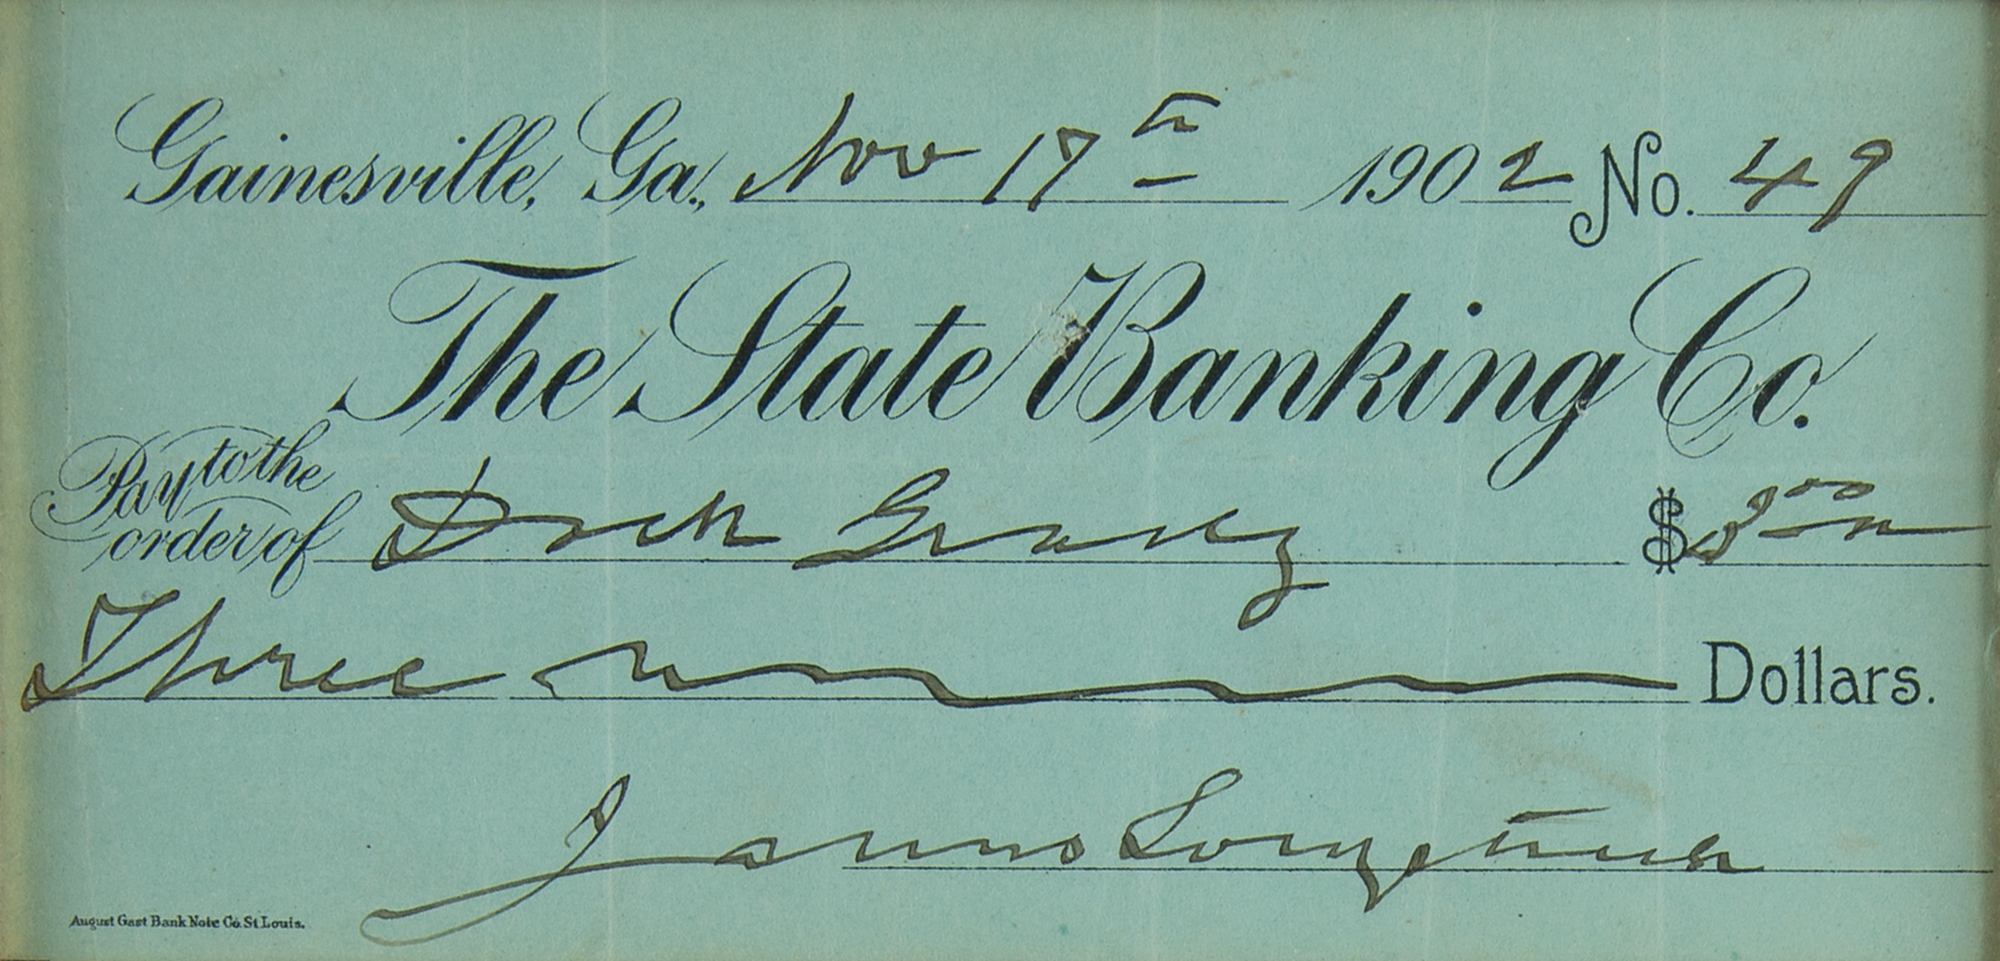 Gainesville, Ga., Nov 17th 1902 No. 49
The State Banking Co.
Pay to the
order of Dock Grady $3.00
Three Dollars.
James Longstreet
August Gast Bank Note Co. St. Louis.